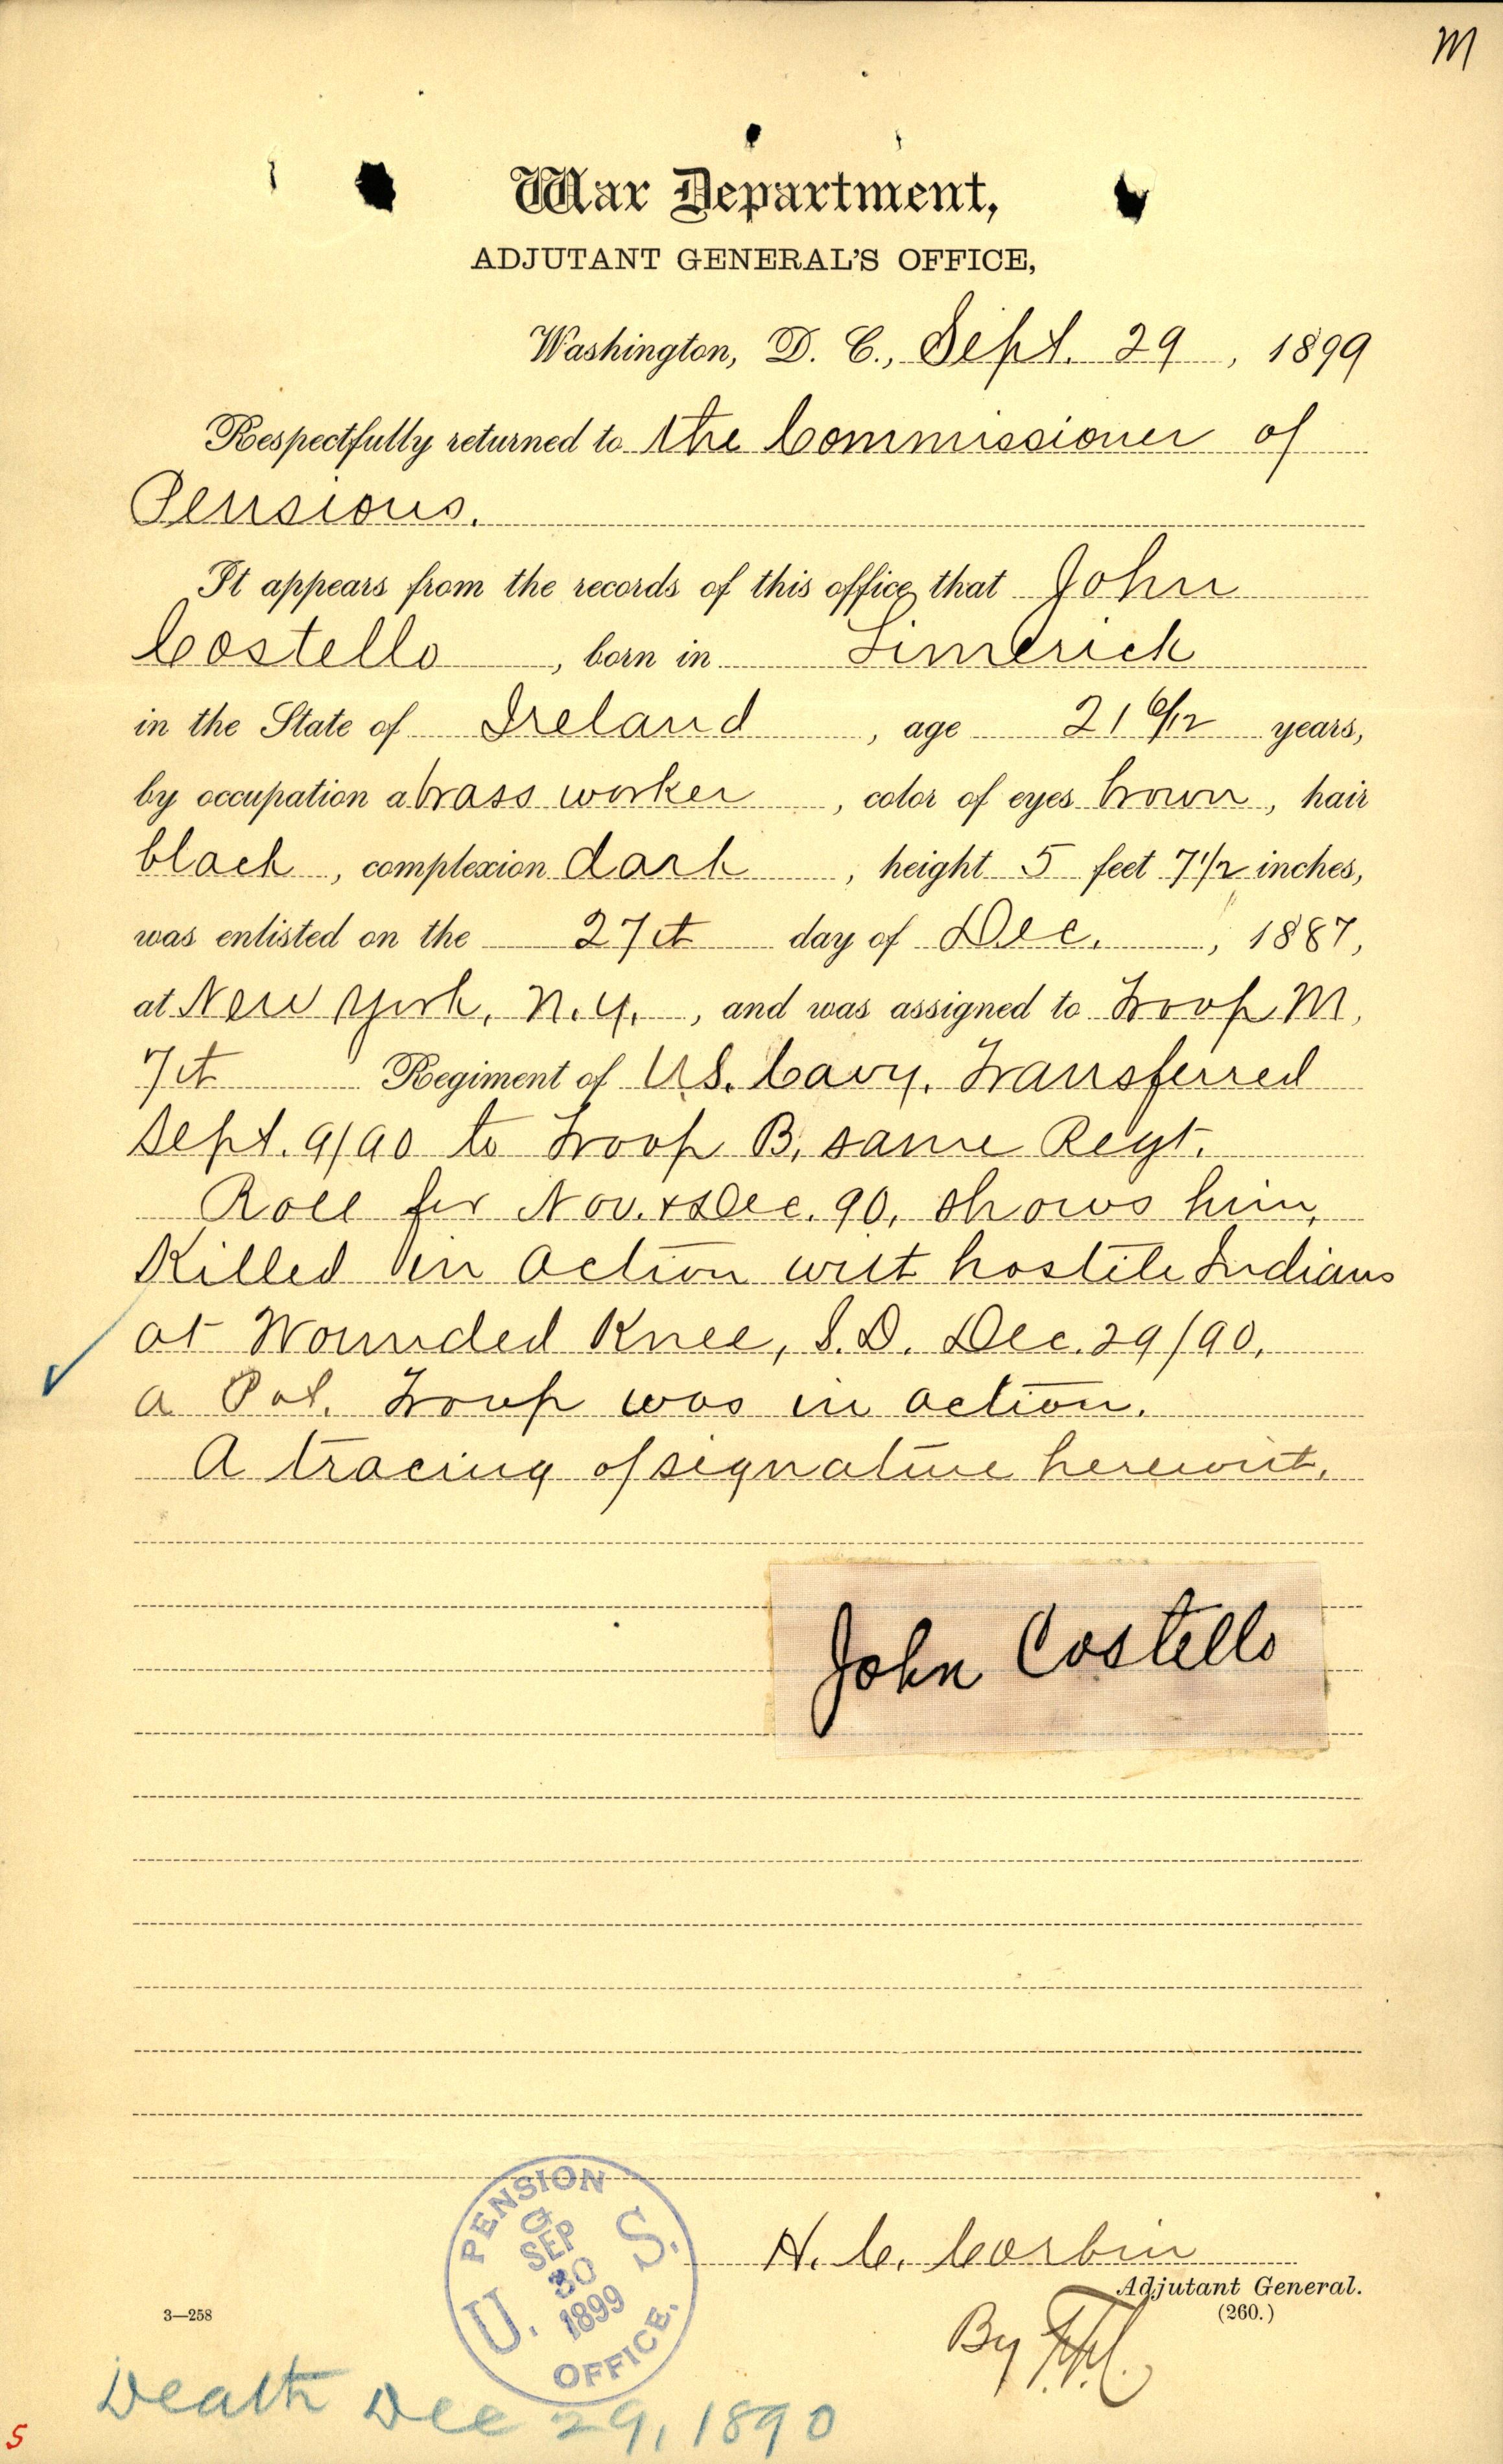 M
War Department,
ADJUTANT GENERAL'S OFFICE,
Washington, D. C., Sept. 29, 1899
Respectfully returned to the Commissioner of
Pensions.
It appears from the records of this office that John
Costello, born in Limerick
in the State of Ireland, age 21 6/12 years,
by occupation a brass worker, color of eyes brown, hair
black, complexion dark, height 5 feet 7 1/2 inches,
was enlisted on the 27th day of Dec., 1887,
at New York, N.Y., and was assigned to Troop M,
7th Regiment of U.S. Cavy. Transferred
Sept. 9/90 to Troop B, same Regt.
Roll for Nov. & Dec. 90, shows him,
Killed in action with hostile Indians
at Wounded Knee, S.D. Dec. 29/90,
a Pvt. Troop was in action.
A tracing of signature herewith.
John Costello
PENSION
G
SEP
30
1899
U. S.
OFFICE.
H. C. Corbin
Adjutant General.
(260.)
3—258
By
Death Dec 29, 1890
5